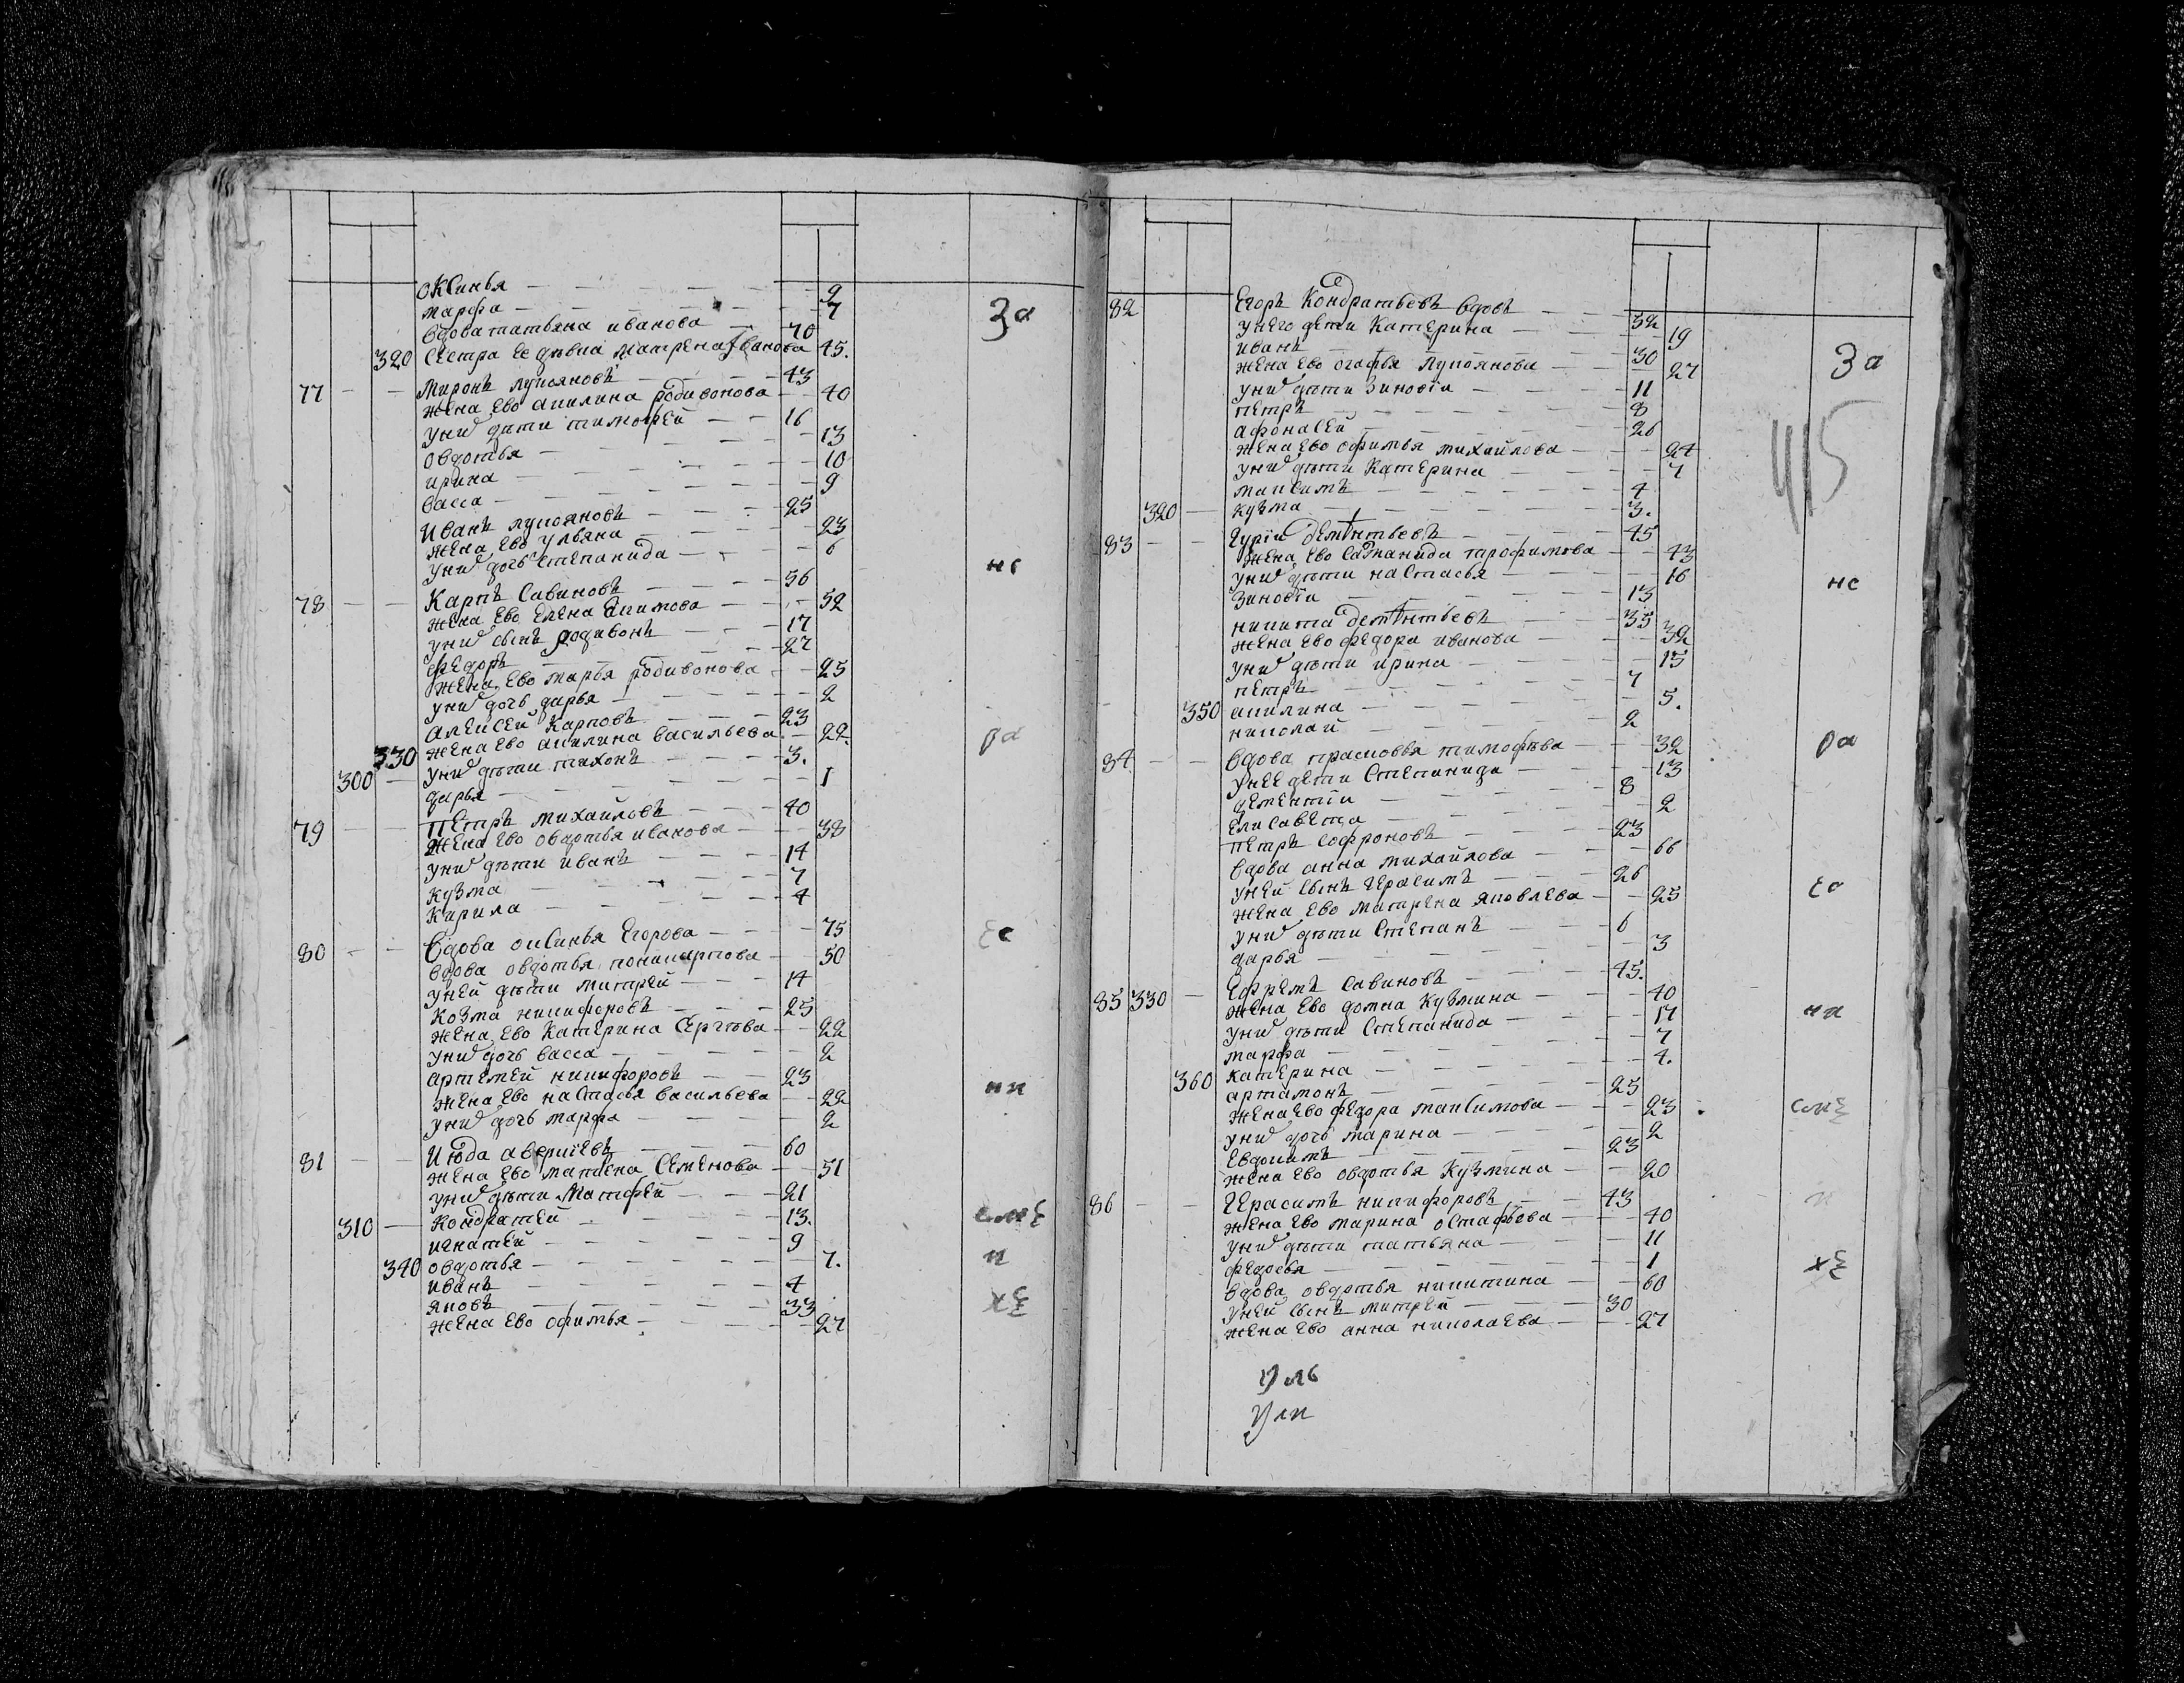 оксинья — 9
марфа — 7
вдова татьяна иванова — 70
320 сестра ее девка матрена Іванова 45.
77 Миронъ лукояновъ — 43
жена ево акилина родивонова — 40
у них дѣти тимофей — 16
овдотья — 13
ирина — 10
васса — 9
Иванъ лукояновъ — 25
жена ево ульяна — 23
у них дочь степанида — 6
78 Карпъ Савиновъ — 56
жена ево Елена Якимова — 52
у них сынъ родивонъ — 17
федоръ — 27
жена ево марья родивонова — 25
у них дочь дарья — 2
Алексей Карповъ — 23
330 жена ево акилина васильева — 22.
300 у них дѣти тихонъ — 3.
дарья — 1
79 Петръ михайловъ — 40
жена ево овдотья иванова — 38
у них дѣти иванъ — 14
кузма — 7
Кирила — 4
80 Вдова оксинья Егорова — 75
вдова овдотья поликарпова — 50
у ней дѣти митрей — 14
Козма никифоровъ — 25
жена ево Катерина Сергѣева — 22
у них дочь васса — 2
артемей никифоровъ — 23
жена ево настасья васильева — 22
у них дочь марфа — 2
81 Июда аверкіевъ — 60
жена ево матрена Семенова — 51
у них дѣти Матфей — 21
310 Кондратей — 13.
игнатей — 9
340 овдотья — 7.
иванъ — 4
яковъ — 33
жена ево офимья — 27
За
нс
ра
ес
ни
х
82 Егоръ Кондратьевъ вдовъ — 32
у него дети Катерина — 19
иванъ — 30
жена ево огафья Лукоянова — 27
у них дѣти Зиновіи — 11
петръ — 8
афонасей — 26
жена ево офимья михайлова — 24
у них дѣти Катерина — 7
максимъ — 4
320 кузма — 3.
83 Гуріи Дементьевъ — 45
жена ево трофимова — 43
у них дѣти настасья — 16
Зиновіи — 13
никита дементьевъ — 35
жена ево федора иванова — 32
у них дѣти ирина — 15
петръ — 7
350 акилина — 5.
николай — 2
84 Вдова прасковья тимофѣева — 32
у нее дети Степанида — 13
дементіи — 8
елисавета — 2
Петръ Софроновъ — 23
вдова анна михайлова — 66
у ней сынъ герасимъ — 26
жена ево матрена яковлева — 25
у них дѣти Степанъ — 6
дарья — 3
85 330 Ефремъ Савиновъ — 45.
жена ево домна Кузмина — 40
у них дѣти Степанида — 17
марфа — 7
360 катерина — 4.
артамонъ — 25
жена ево федора максимова — 23
у них дочь марина — 2
Евдокимъ — 23
жена ево овдотья Кузмина — 20
86 Герасимъ никифоровъ — 43
жена ево марина остафьева — 40
у них дѣти татьяна — 11
федосья — 1
вдова овдотья никитина — 60
у ней сынъ митрей — 30
жена ево анна николаева — 27
За
415
нс
ра
ес